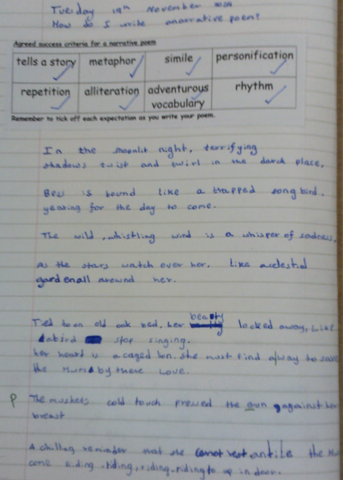 Tuesday 19th November
How do I write a narrative poem?
Agreed success criteria for a narrative poem
tells a story metaphor simile personification
repetition alliteration adventurous vocabulary rhythm
Remember to tick off each expectation as you write your poem.
In the moonlit night, terrifying
shadows twist and twirl in the darck place.
Bess is bound like a trapped songbird,
yearing for the day to come.
The wild, whistling wind is a whisper of sadness,
as the stars watch over her, like a celestial
gard enall around her.
Tied to an old oak bed, her beauty locked away, Like
a bird stop singing.
her heart is a caged lion, she must find a way to save
the Man by there Love.
P The muskets cold touch pressed the gun against her
breast
A chilling reminder that she cannot rest, untile the
come riding, riding, riding, riding to up in door.